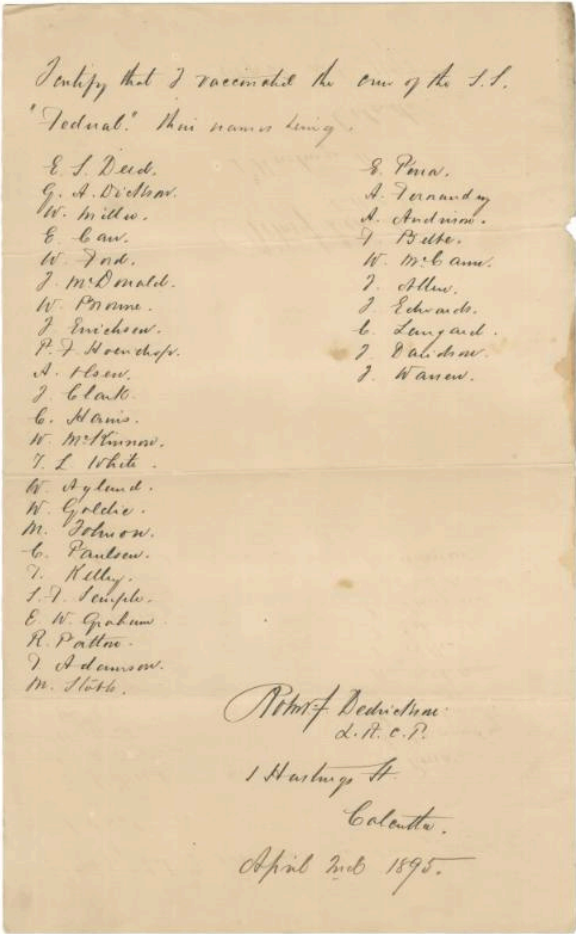 I certify that I vaccinated the crew of the S.S.
"Federal." their names being.
E. S. Deed.
G. A. Dickson.
W. Miller.
E. Carr.
W. Ford.
J. McDonald.
W. Browne.
J. Erichson.
P. F.
A. Olsen.
J. Clark.
C. Harris.
W. McKinnon.
T. L. White.
W. Ayland.
W. Goldie.
M. Johnson.
C. Paulsen.
T. Kelly.
S. T. Semple.
E. W. Graham
R. Patton.
T. Adamson.
M. Stobb.
E. Pena.
A. Fernandez
A. Andrison.
T. Belte.
W. McCann.
J. Allen.
J. Edwards.
C. Langard.
J. Davidson.
J. Warren.
Robt. F. Dedrickson
L.R.C.P.
1 Hastings St.
Calcutta.
April 2nd 1895.